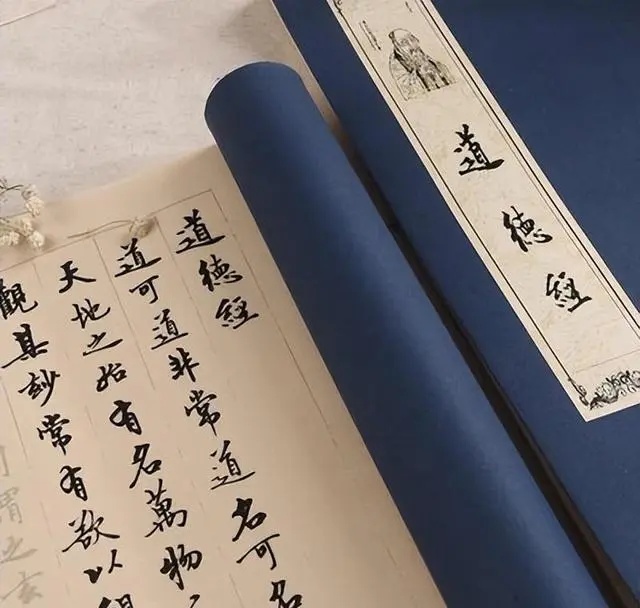 道德經
道德經
道可道非常道名可名
天地之始有名萬物
觀其妙常有欲以
謂之玄